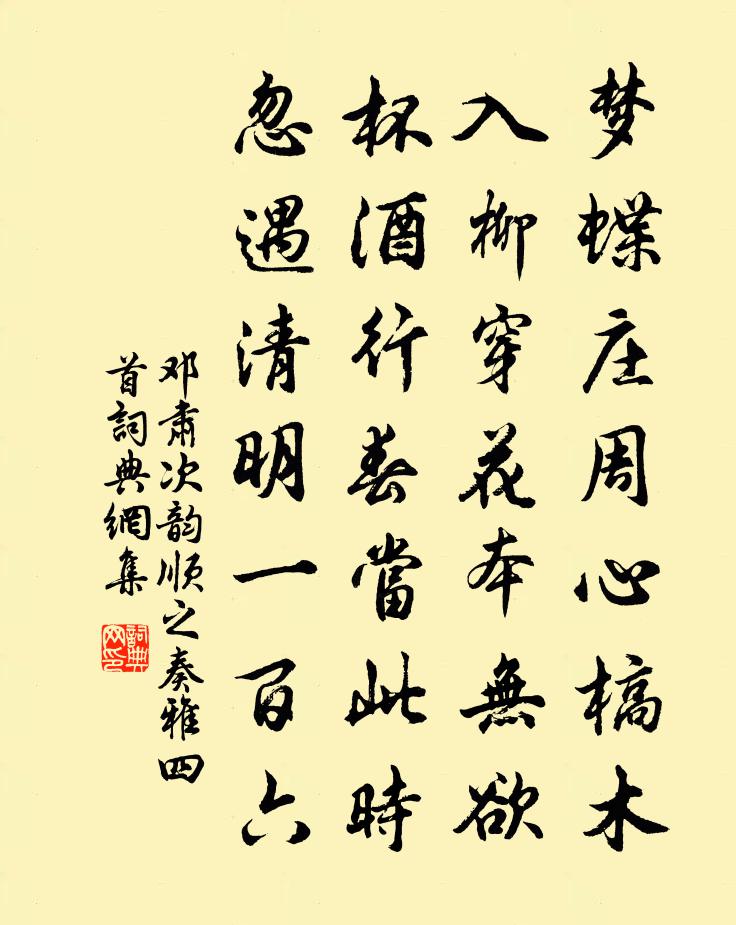 梦蝶庄周心槁木
入柳穿花本無欲
杯酒行春當此時
忽遇清明一百六
邓肃次韵顺之奏雅四
首詞典網集
詞典网印